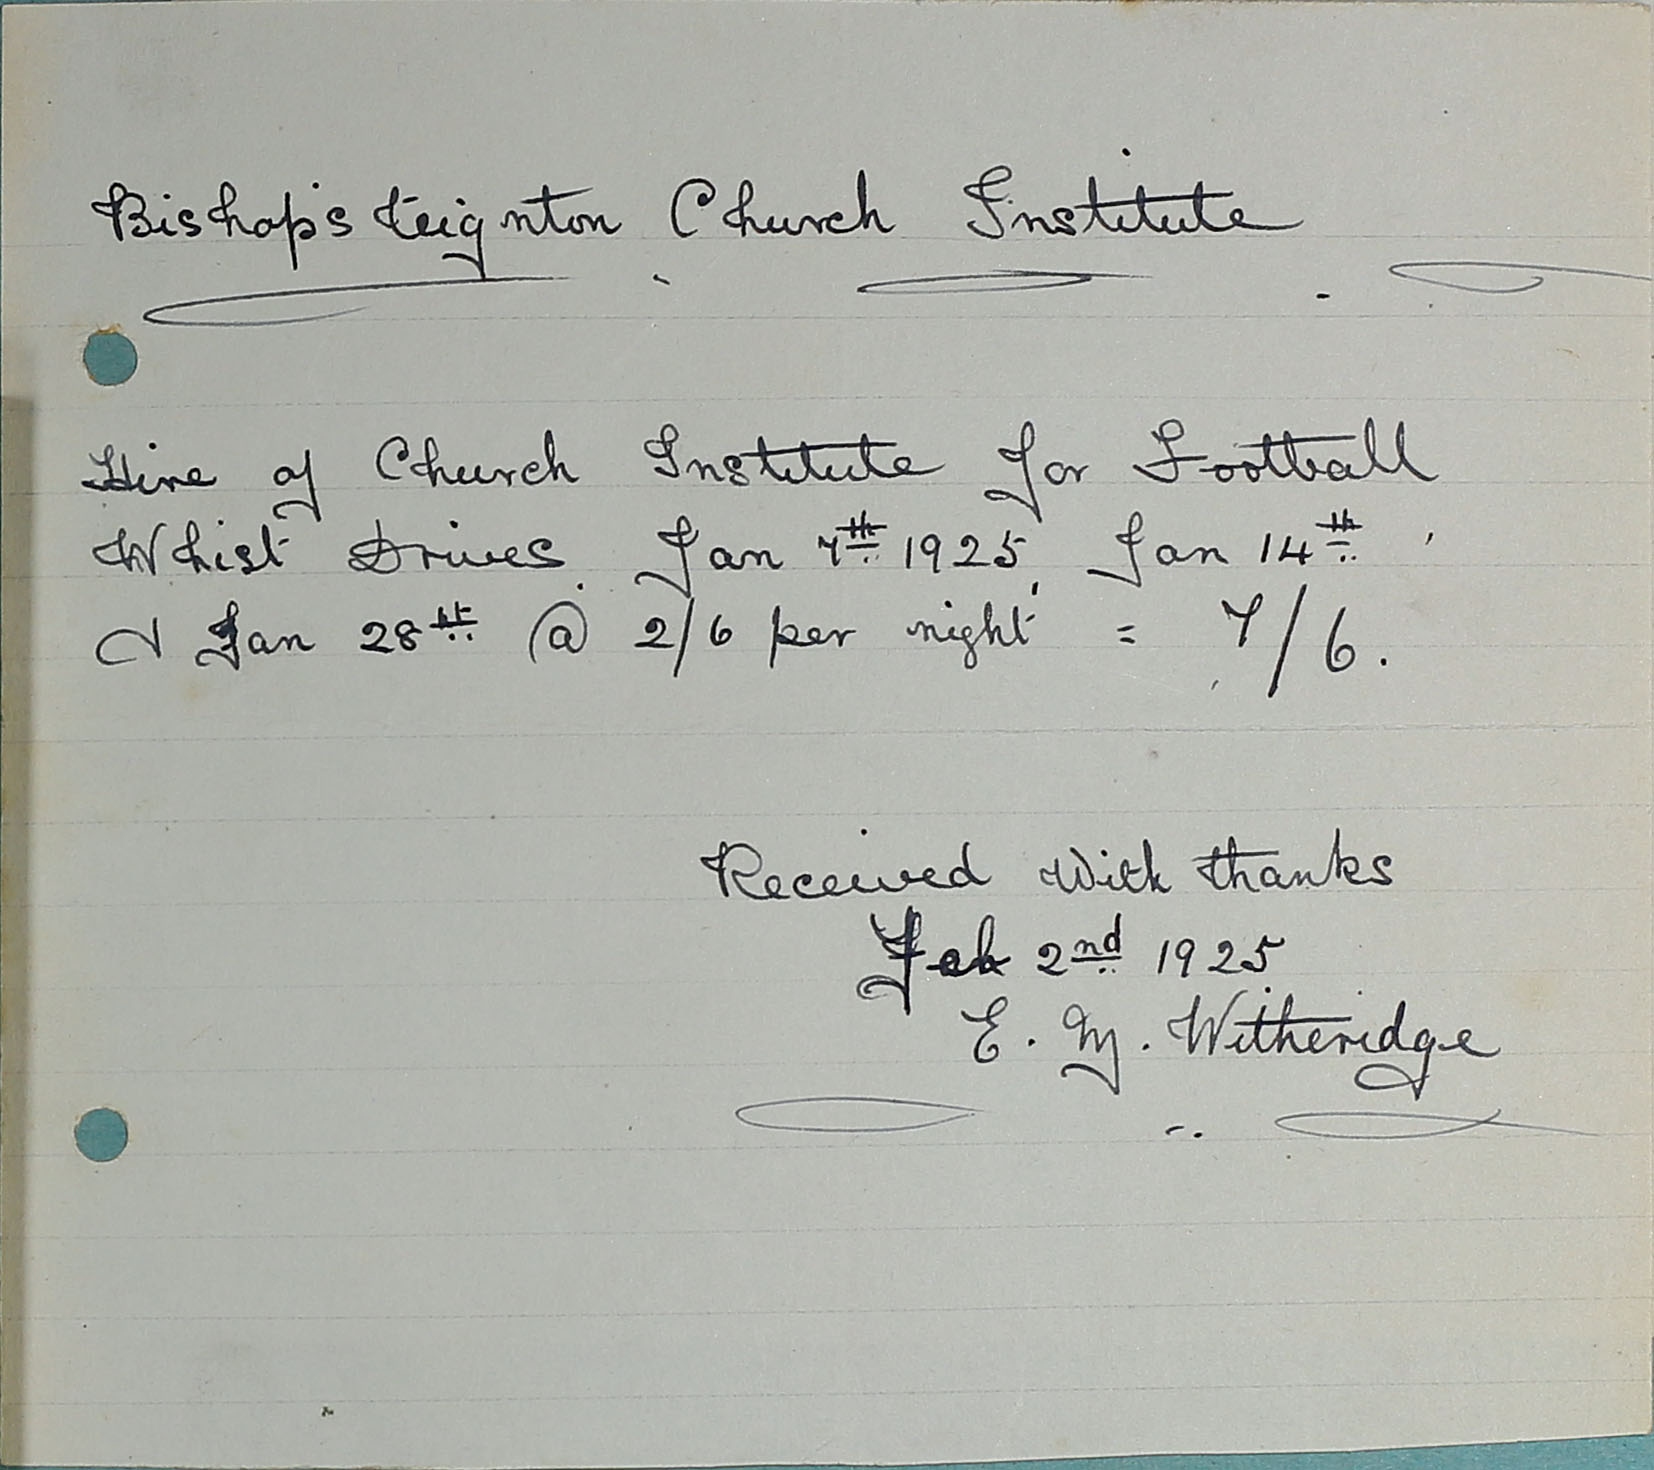 Bishop's teignton Church Institute
Hire of Church Institute for Football
Whist Drives. Jan 7th 1925, Jan 14th
& Jan 28th @ 2/6 per night = 7/6.
Received With thanks
Feb 2nd 1925
E. M. Witheridge